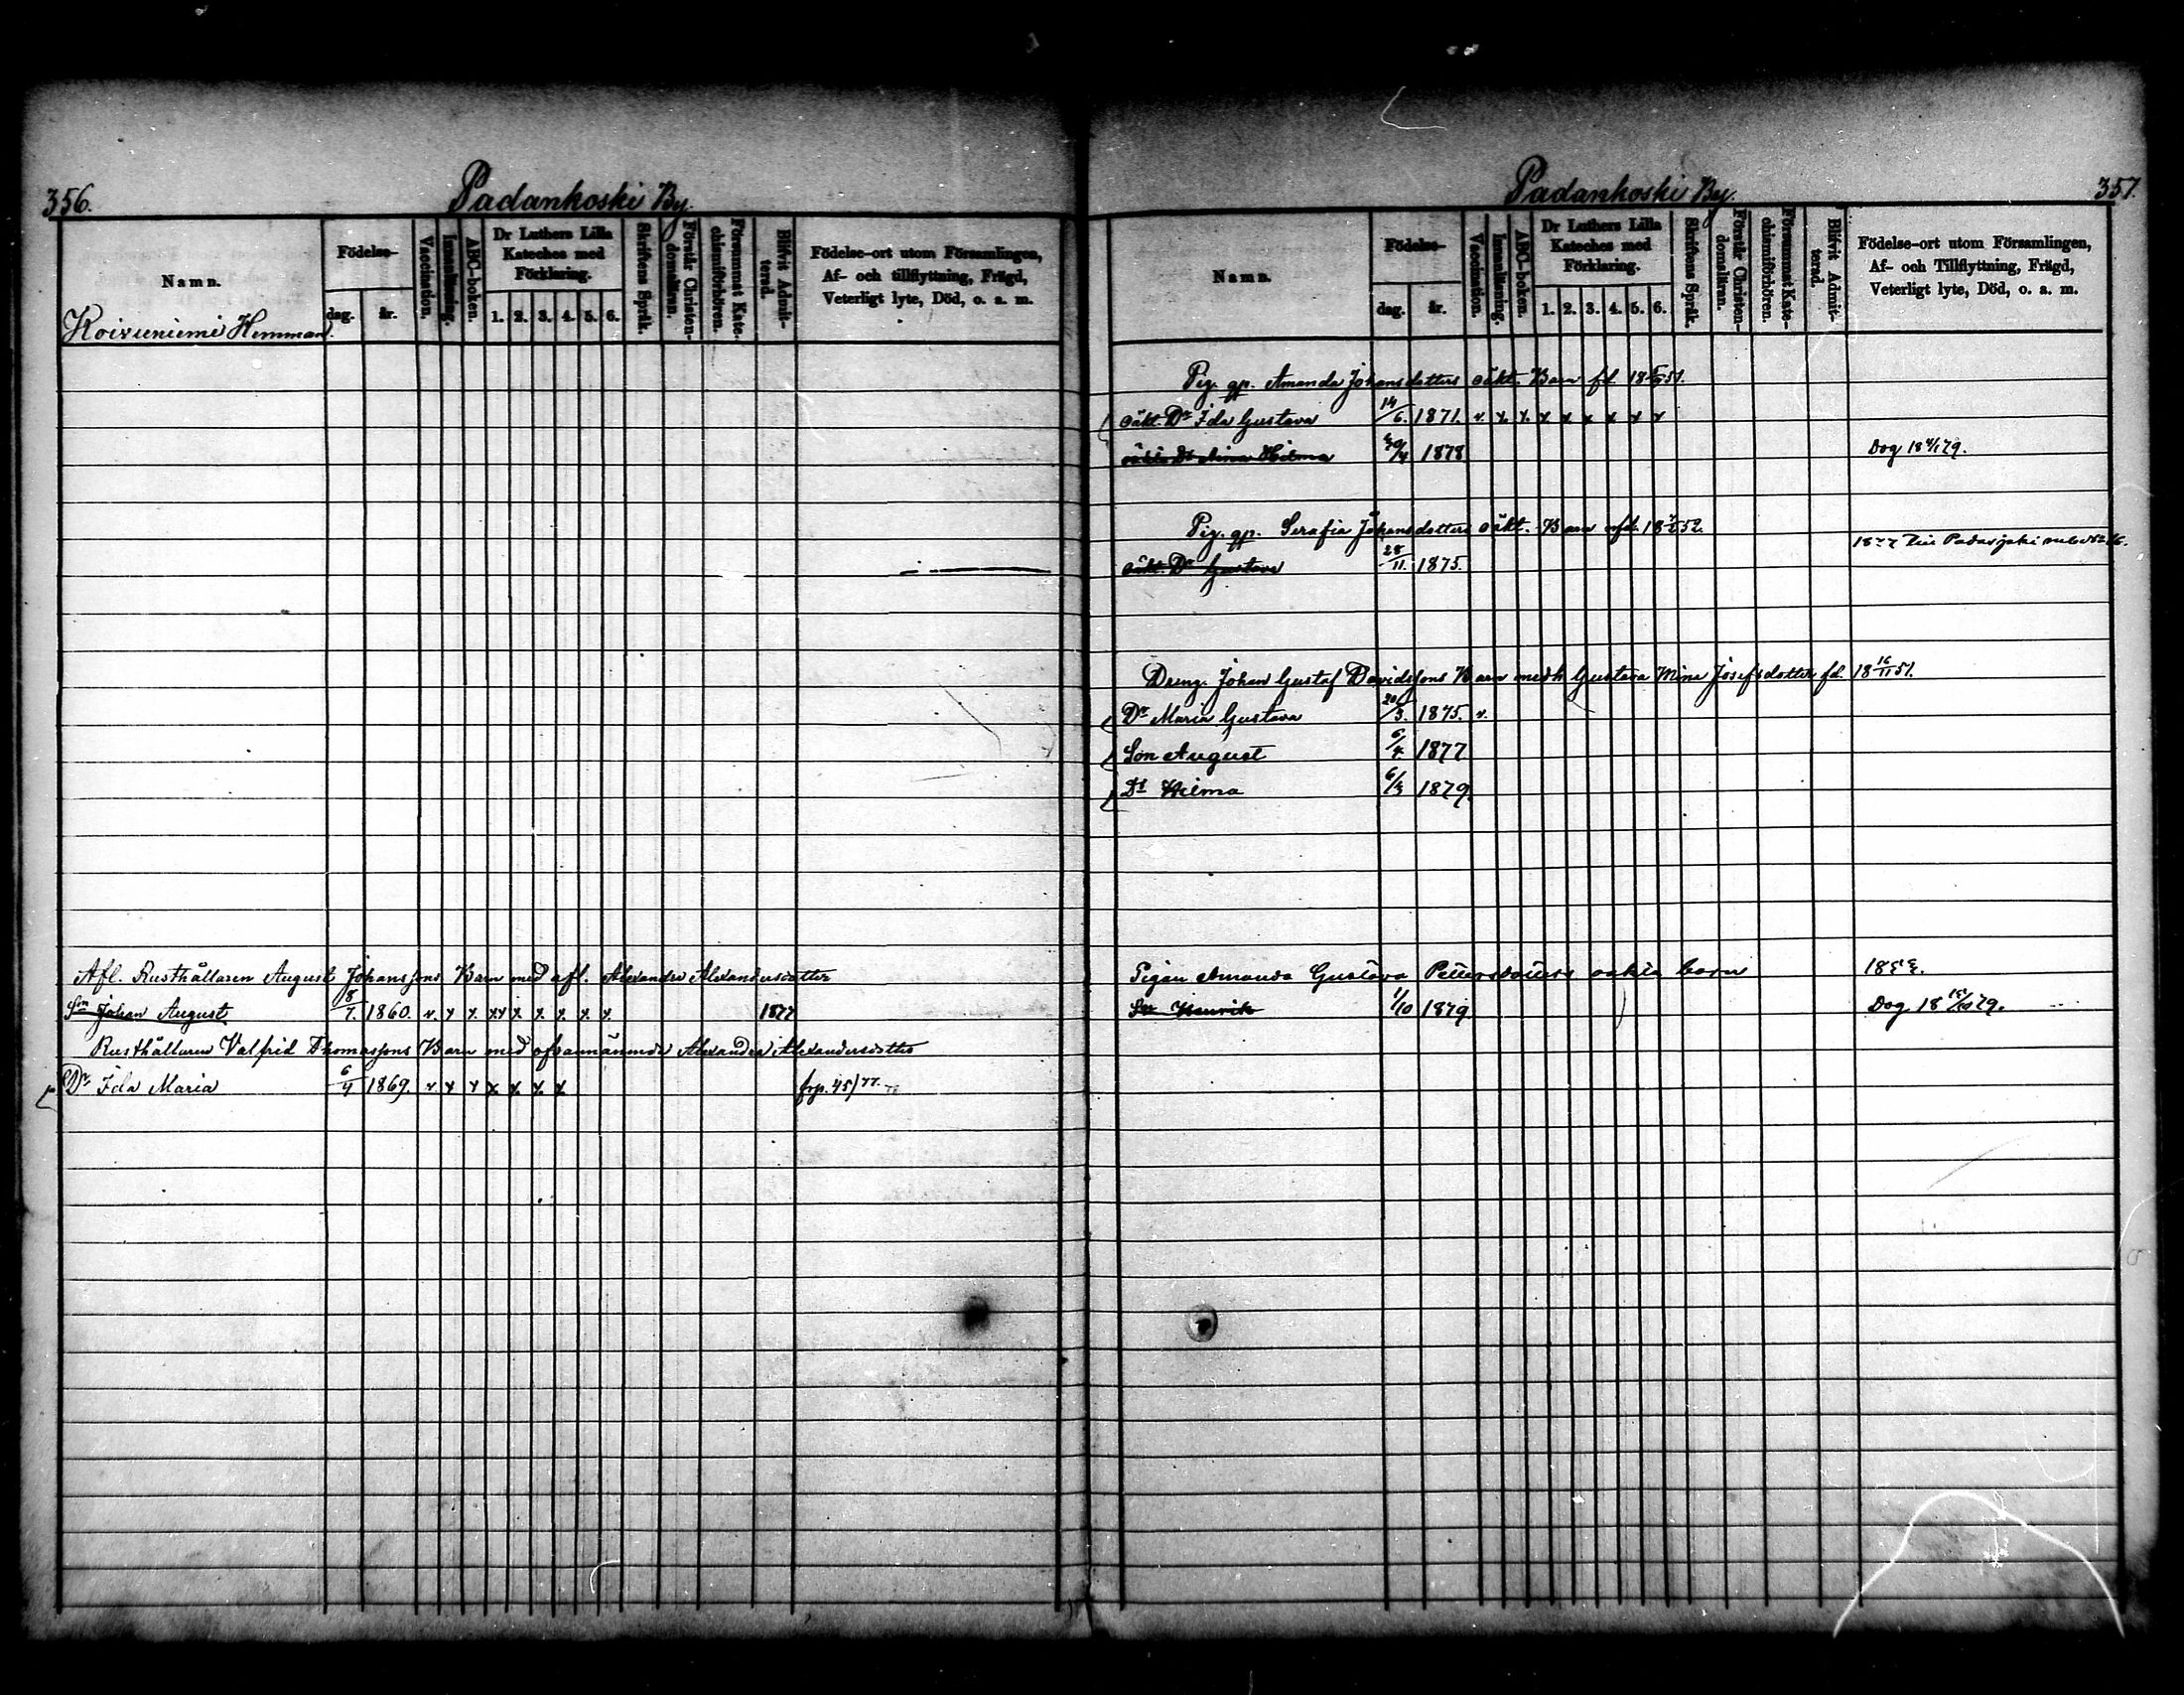 356.
Padankoski By.
Namn.
Födelse-
dag. år.
Vaccination.
Innanläsning.
ABC-boken.
Dr Luthers Lilla Kateches med Förklaring.
1. 2. 3. 4. 5. 6.
Skriftens Språk.
Förstår Christendomsläran.
Försummat Katechismiförhören.
Blifvit Admitterad.
Födelse-ort utom Församlingen, Af- och tillflyttning, Frägd, Veterligt lyte, Död, o. a. m.
Koivuniemi Hemman.
Afl. Rusthållaren August Johanssons Barn med afl. Alexandra Alexandersdotter
Son Johan August 8/7. 1860. v. x x xx x x x x 1877
Rusthållaren Valfrid Thomassons Barn med ofvannämnde Alexandra Alexandersdotter
Dr Ida Maria 6/4 1869. v x x x x x x frp. 45/77
357.
Padankoski By.
Namn.
Födelse-
dag. år.
Vaccination.
Innanläsning.
ABC-boken.
Dr Luthers Lilla Kateches med Förklaring.
1. 2. 3. 4. 5. 6.
Skriftens Språk.
Förstår Christendomsläran.
Försummat Katechismiförhören.
Blifvit Admitterad.
Födelse-ort utom Församlingen, Af- och Tillflyttning, Frägd, Veterligt lyte, Död, o. a. m.
Pig. gp. Amanda Johansdotters oäkt. Barn fd. 51.
oäkt. Dr Ida Gustava 14/6. 1871. v. x x x x x x x x
Hilma 1878 Dog 79.
Pig. gp. Serafia Johansdotters oäkt. Barn 52.
oäkt. Dr Gustava 28/11. 1875. Padasjoki
Dreng. Johan Gustaf Davidssons Barn medh Gustava Mina Josefsdotter fd. 18 16/11 51.
Dr Maria Gustava 20/3. 1875. v.
Son August 6/4 1877
Dr Hilma 6/3 1879
Pigan Amanda Gustava Pettersdotters oäkta barn
Son Henrik 1/10 1879 Dog 18 79.